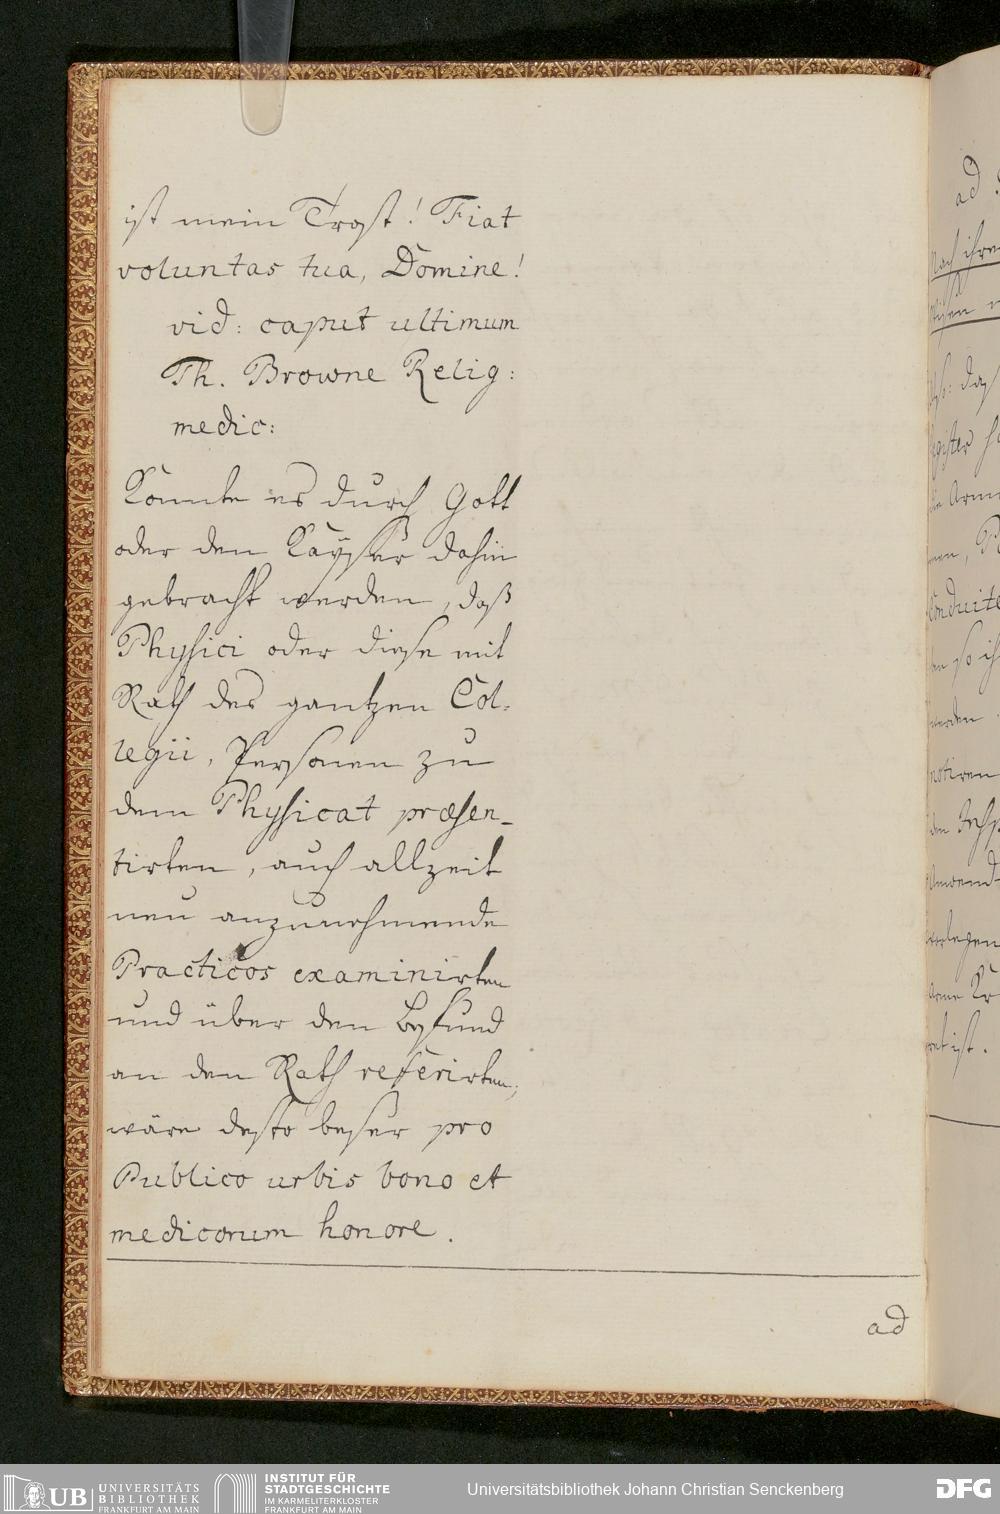 ist mein Trost! Fiat
voluntas tua, Domine!
vid: caput ultimum
Th. Browne Relig:
medic:
Könnte es durch Gott
oder den Kayser dahin
gebracht werden, daß
Physici oder diese mit
Rath des gantzen Col-
legii, Personen zu
dem Physicat præsen-
tirten, auch allzeit
neu anzunehmende
Practicos examinirten
und über den Befund
an den Rath referirten,
wäre desto beßer pro
Publico urbis bono et
medicorum honore.
ad
ad
Nach ihren
daß
die Arme
Conduite
werden
notiren
arme
ist.
UB UNIVERSITÄTS
BIBLIOTHEK
FRANKFURT AM MAIN
INSTITUT FÜR
STADTGESCHICHTE
IM KARMELITERKLOSTER
FRANKFURT AM MAIN
Universitätsbibliothek Johann Christian Senckenberg
DFG